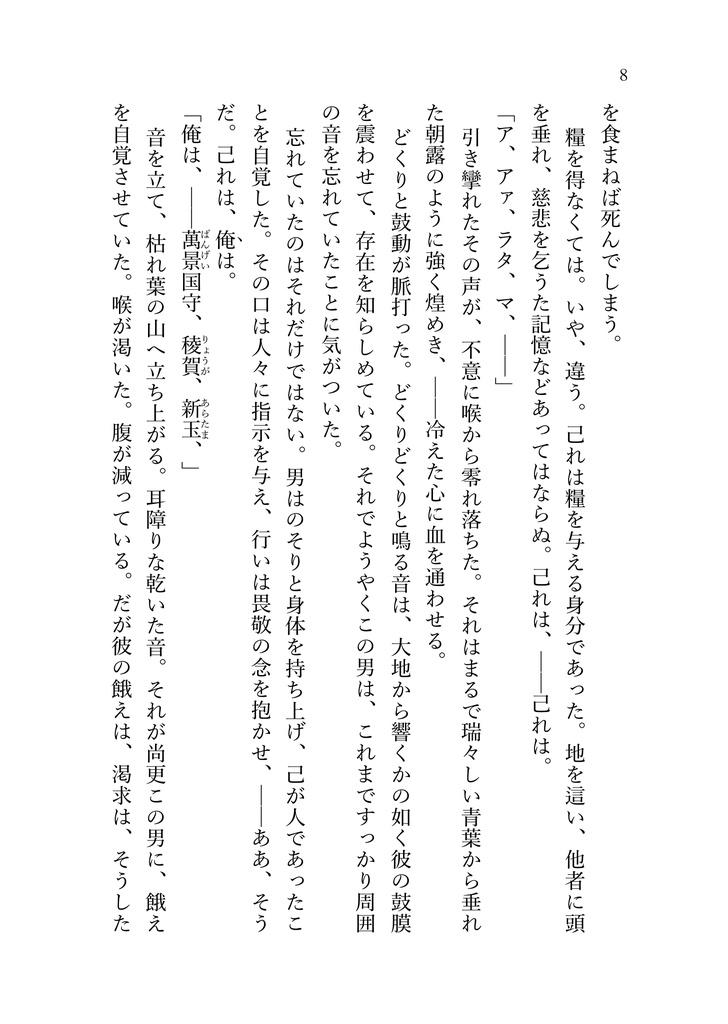 8
を食まねば死んでしまう。
糧を得なくては。いや、違う。己れは糧を与える身分であった。地を這い、他者に頭
を垂れ、慈悲を乞うた記憶などあってはならぬ。己れは、――己れは。
「ア、アァ、ラタ、マ、――」
引き攣れたその声が、不意に喉から零れ落ちた。それはまるで瑞々しい青葉から垂れ
た朝露のように強く煌めき、――冷えた心に血を通わせる。
どくりと鼓動が脈打った。どくりどくりと鳴る音は、大地から響くかの如く彼の鼓膜
を震わせて、存在を知らしめている。それでようやくこの男は、これまですっかり周囲
の音を忘れていたことに気がついた。
忘れていたのはそれだけではない。男はのそりと身体を持ち上げ、己が人であったこ
とを自覚した。その口は人々に指示を与え、行いは畏敬の念を抱かせ、――ああ、そう
だ。己れは、俺は。
「俺は、――萬景国守、稜賀、新玉、」
音を立て、枯れ葉の山へ立ち上がる。耳障りな乾いた音。それが尚更この男に、餓え
を自覚させていた。喉が渇いた。腹が減っている。だが彼の餓えは、渇求は、そうした